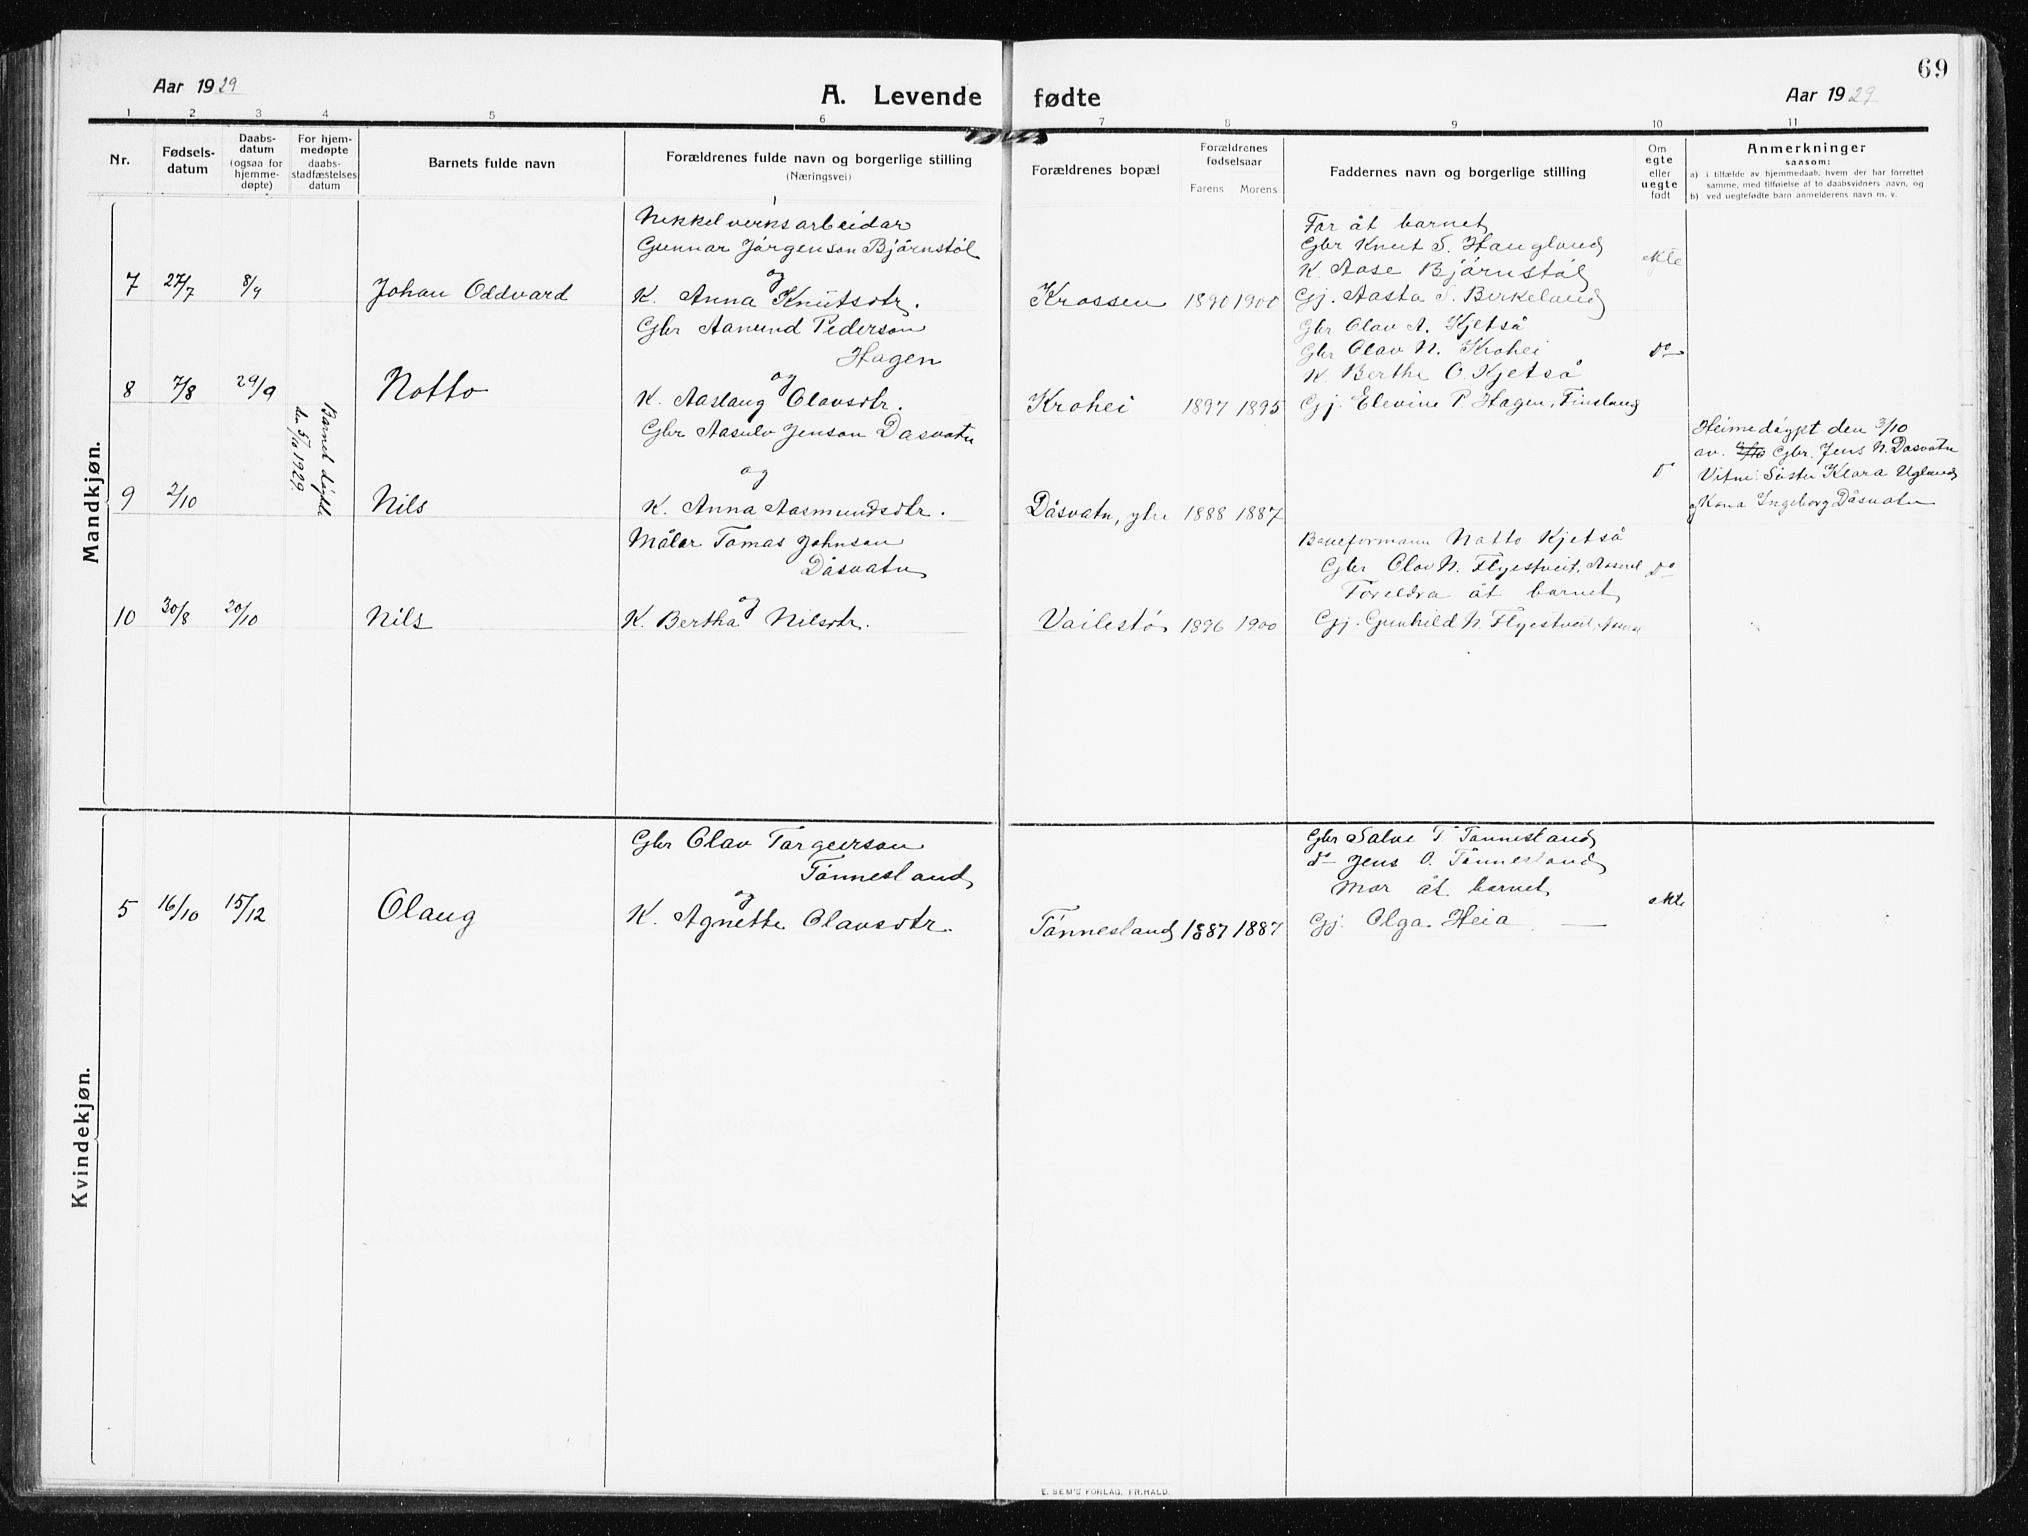 69
Aar 1929
A. Levende fødte
Aar 1929
1 2 3 4 5 6 7 8 9 10 11
Nr.
Fødsels-
datum
Daabs-
datum
(ogsaa for
hjemme-
døpte)
For hjem-
medøpte
daabs-
stadfæstelses
datum
Barnets fulde navn
Forældrenes fulde navn og borgerlige stilling
(Næringsvei)
Forældrenes bopæl
Forældrenes
fødselsaar
Farens Morens
Faddernes navn og borgerlige stilling
Om
egte
eller
uegte
født
Anmerkninger
saasom:
a) i tilfælde av hjemmedaab, hvem der har forrettet
samme, med tilføielse af to daabsvidners navn, og
b) ved uegtefødte barn anmelderens navn m. v.
Mandkjøn.
7 27/7 8/9 Johan Oddvard
Nikkelverksarbeidar
Gunnar Jørgenson Bjørnstøl
og
K. Anna Knutsdtr.
Krossen 1890 1900
Far åt barnet
Gbr Knut S. Haugland
K. Aase Bjørnstøl
Gj. Aasta S. Birkeland
ekte
8 7/8 29/9 Notto
Gbr Aanund Pederson
Hagen
og
K. Aaslaug Olavsdtr.
Krohei 1897 1895
Gbr Olav A. Kjetså
Gbr Olav N. Krohei
K. Berthe O. Kjetså
Gj. Elevine P. Hagen, Finsland
do
9 2/10
Barnet døydde
den 5/10 1929.
Nils
Gbr Aasulv Jenson Dasvatn
og
K. Anna Aasmundsdtr.
Dåsvatn, ytre 1888 1887
do
Heimedøypt den 3/10
av Gbr. Jens N. Dasvatn
Vitne: Syster Klara Ugland
og Kona Ingeborg Dåsvatn
10 30/8 20/10 Nils
Målar Tomas Johnson
Dåsvatn
og
K. Bertha Nilsdtr.
Vailestø 1896 1900
Baneformann Notto Kjetså
Gbr Olav N. Flyestveit, Aaseral
Foreldra åt barnet
Gj. Gunhild N. Flyestveit, Aaseral
do
Kvindekjøn.
5 16/10 15/12 Olaug
Gbr Olav Targeirson
Tønnesland
og
K. Agnethe Olavsdtr.
Tønnesland 1887 1887
Gbr Salve T. Tønnesland
do Jens O. Tønnesland
Mor åt barnet
Gj. Olga Heia —
ekte
E. SEM'S FORLAG, FR.HALD.